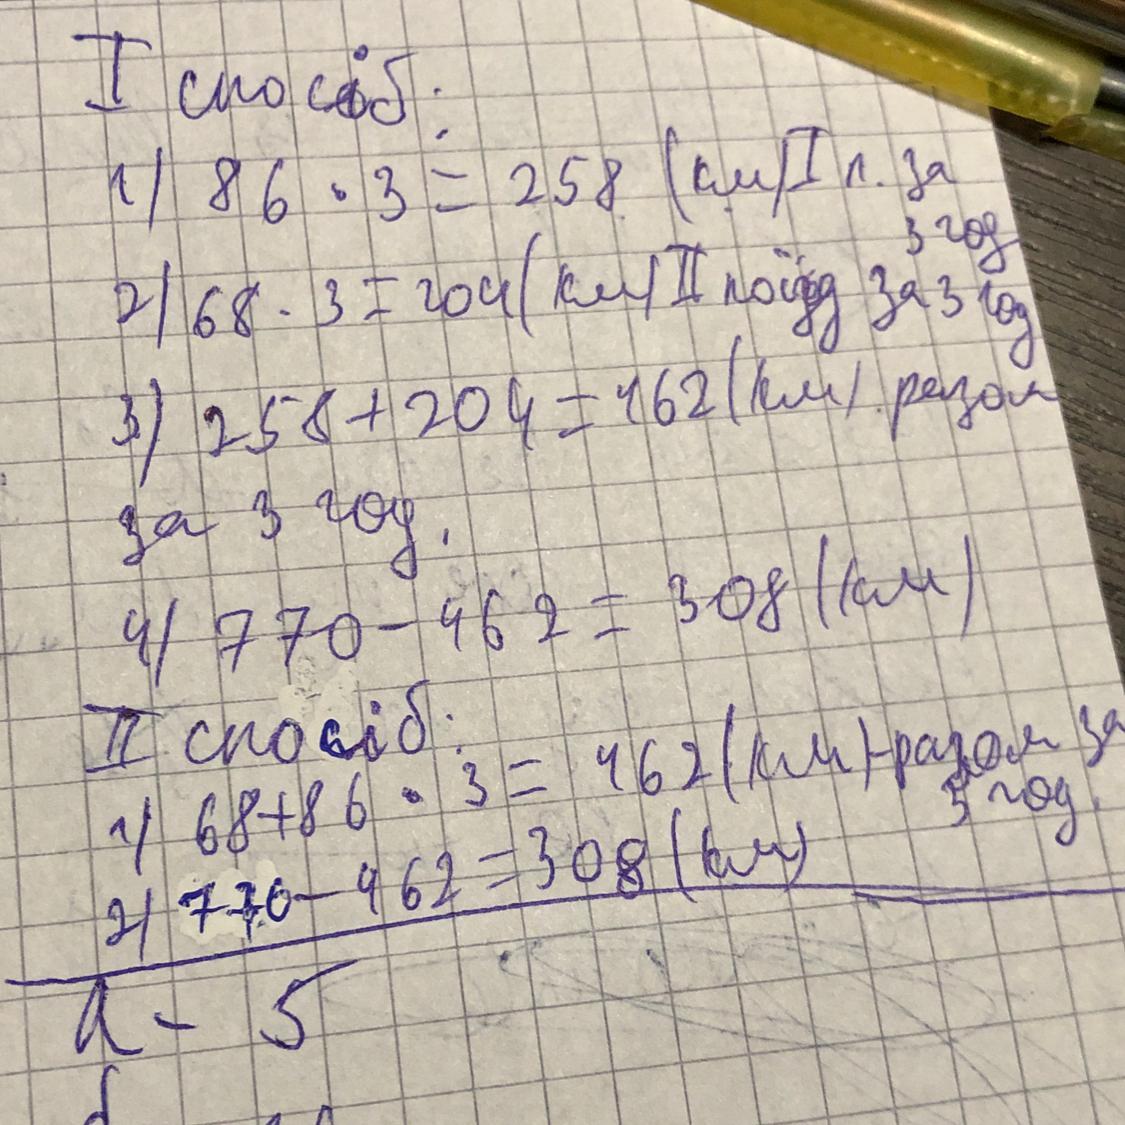 I спосіб:
1) 86 · 3 = 258 (км) I п. за
3 год
2) 68 · 3 = 204 (км) II поїзд за 3 год
3) 258 + 204 = 462 (км) разом
за 3 год.
4) 770 - 462 = 308 (км)
II спосіб:
1) 68+86 · 3 = 462 (км) - разом за
3 год.
2) 770 - 462 = 308 (км)
а - 5